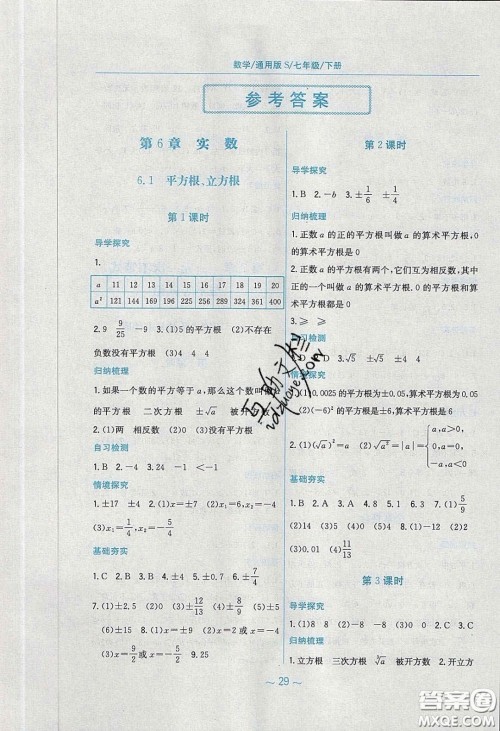 数学/通用版 S/七年级/下册
参考答案
第6章 实 数
6.1 平方根、立方根
第1课时
导学探究
1.
a 11 12 13 14 15 16 17 18 19 20
a² 121 144 169 196 225 256 289 324 361 400
2. 9 9/25 −9 3. (1)5的平方根 (2)不存在
负数没有平方根 (3)4 4 4
归纳梳理
1. 如果一个数的平方等于a,那么这个数叫做
平方根 二次方根 ±√a 被开方数
2. (1)两 相反数 (2)0 没有
自习检测
1. B 2. −4 3. 24 <1 −1
情境探究
1. ±17 ±4 2. (1)x=±5/7 (2)x₁=6, x₂=−6
(3)x₁=1/4, x₂=−5/4
基础夯实
1. C 2. B 3. ±4 4. ±5 5. A 6. −1/2
7. (1)±2.5 (2)0 (3)±12/13 (4)±8/9 (5)±13
(6)±1.5 8. (1)x=±15 (2)x=±7
(3)x=5/2或x=−5/2 9. 25
第2课时
导学探究
1. B 2. −b 3. ±1/6 ±1/4
归纳梳理
1. 正数a的正的平方根叫做a的算术平方根,0
的算术平方根是0
2. 正数a的平方根有两个,它们互为相反数,其中
的正的一个叫做a的算术平方根。0的平方根和算
术平方根都是0
3. ≥ ≥
自习检测
1. D 2. D 3. √5 ±√5 4. 4
情境探究
1. (1)0.0025的平方根是±0.05,算术平方根是
(2)(−6)²的平方根是±6,算术平方根是6
2. (1)(√a)²=a (2)√a²=|a|={a,a>0, 0,a=0, −a,a<0
基础夯实
1. B 2. D 3. A 4. 2 5. 4,8,9 6. B 7. (1)5/9
(2)14 (3)5 (4)15 8. (1)9 (2)2
(3)0.01 (4)11/13
第3课时
导学探究
1. (1)8 8 (2)−8 −8 (3)0 0 2. C 3. C
归纳梳理
1. 立方根 三次方根 ∛a 被开方数 2. 开立方
～ 29 ～
答案圈
MXQE.COM